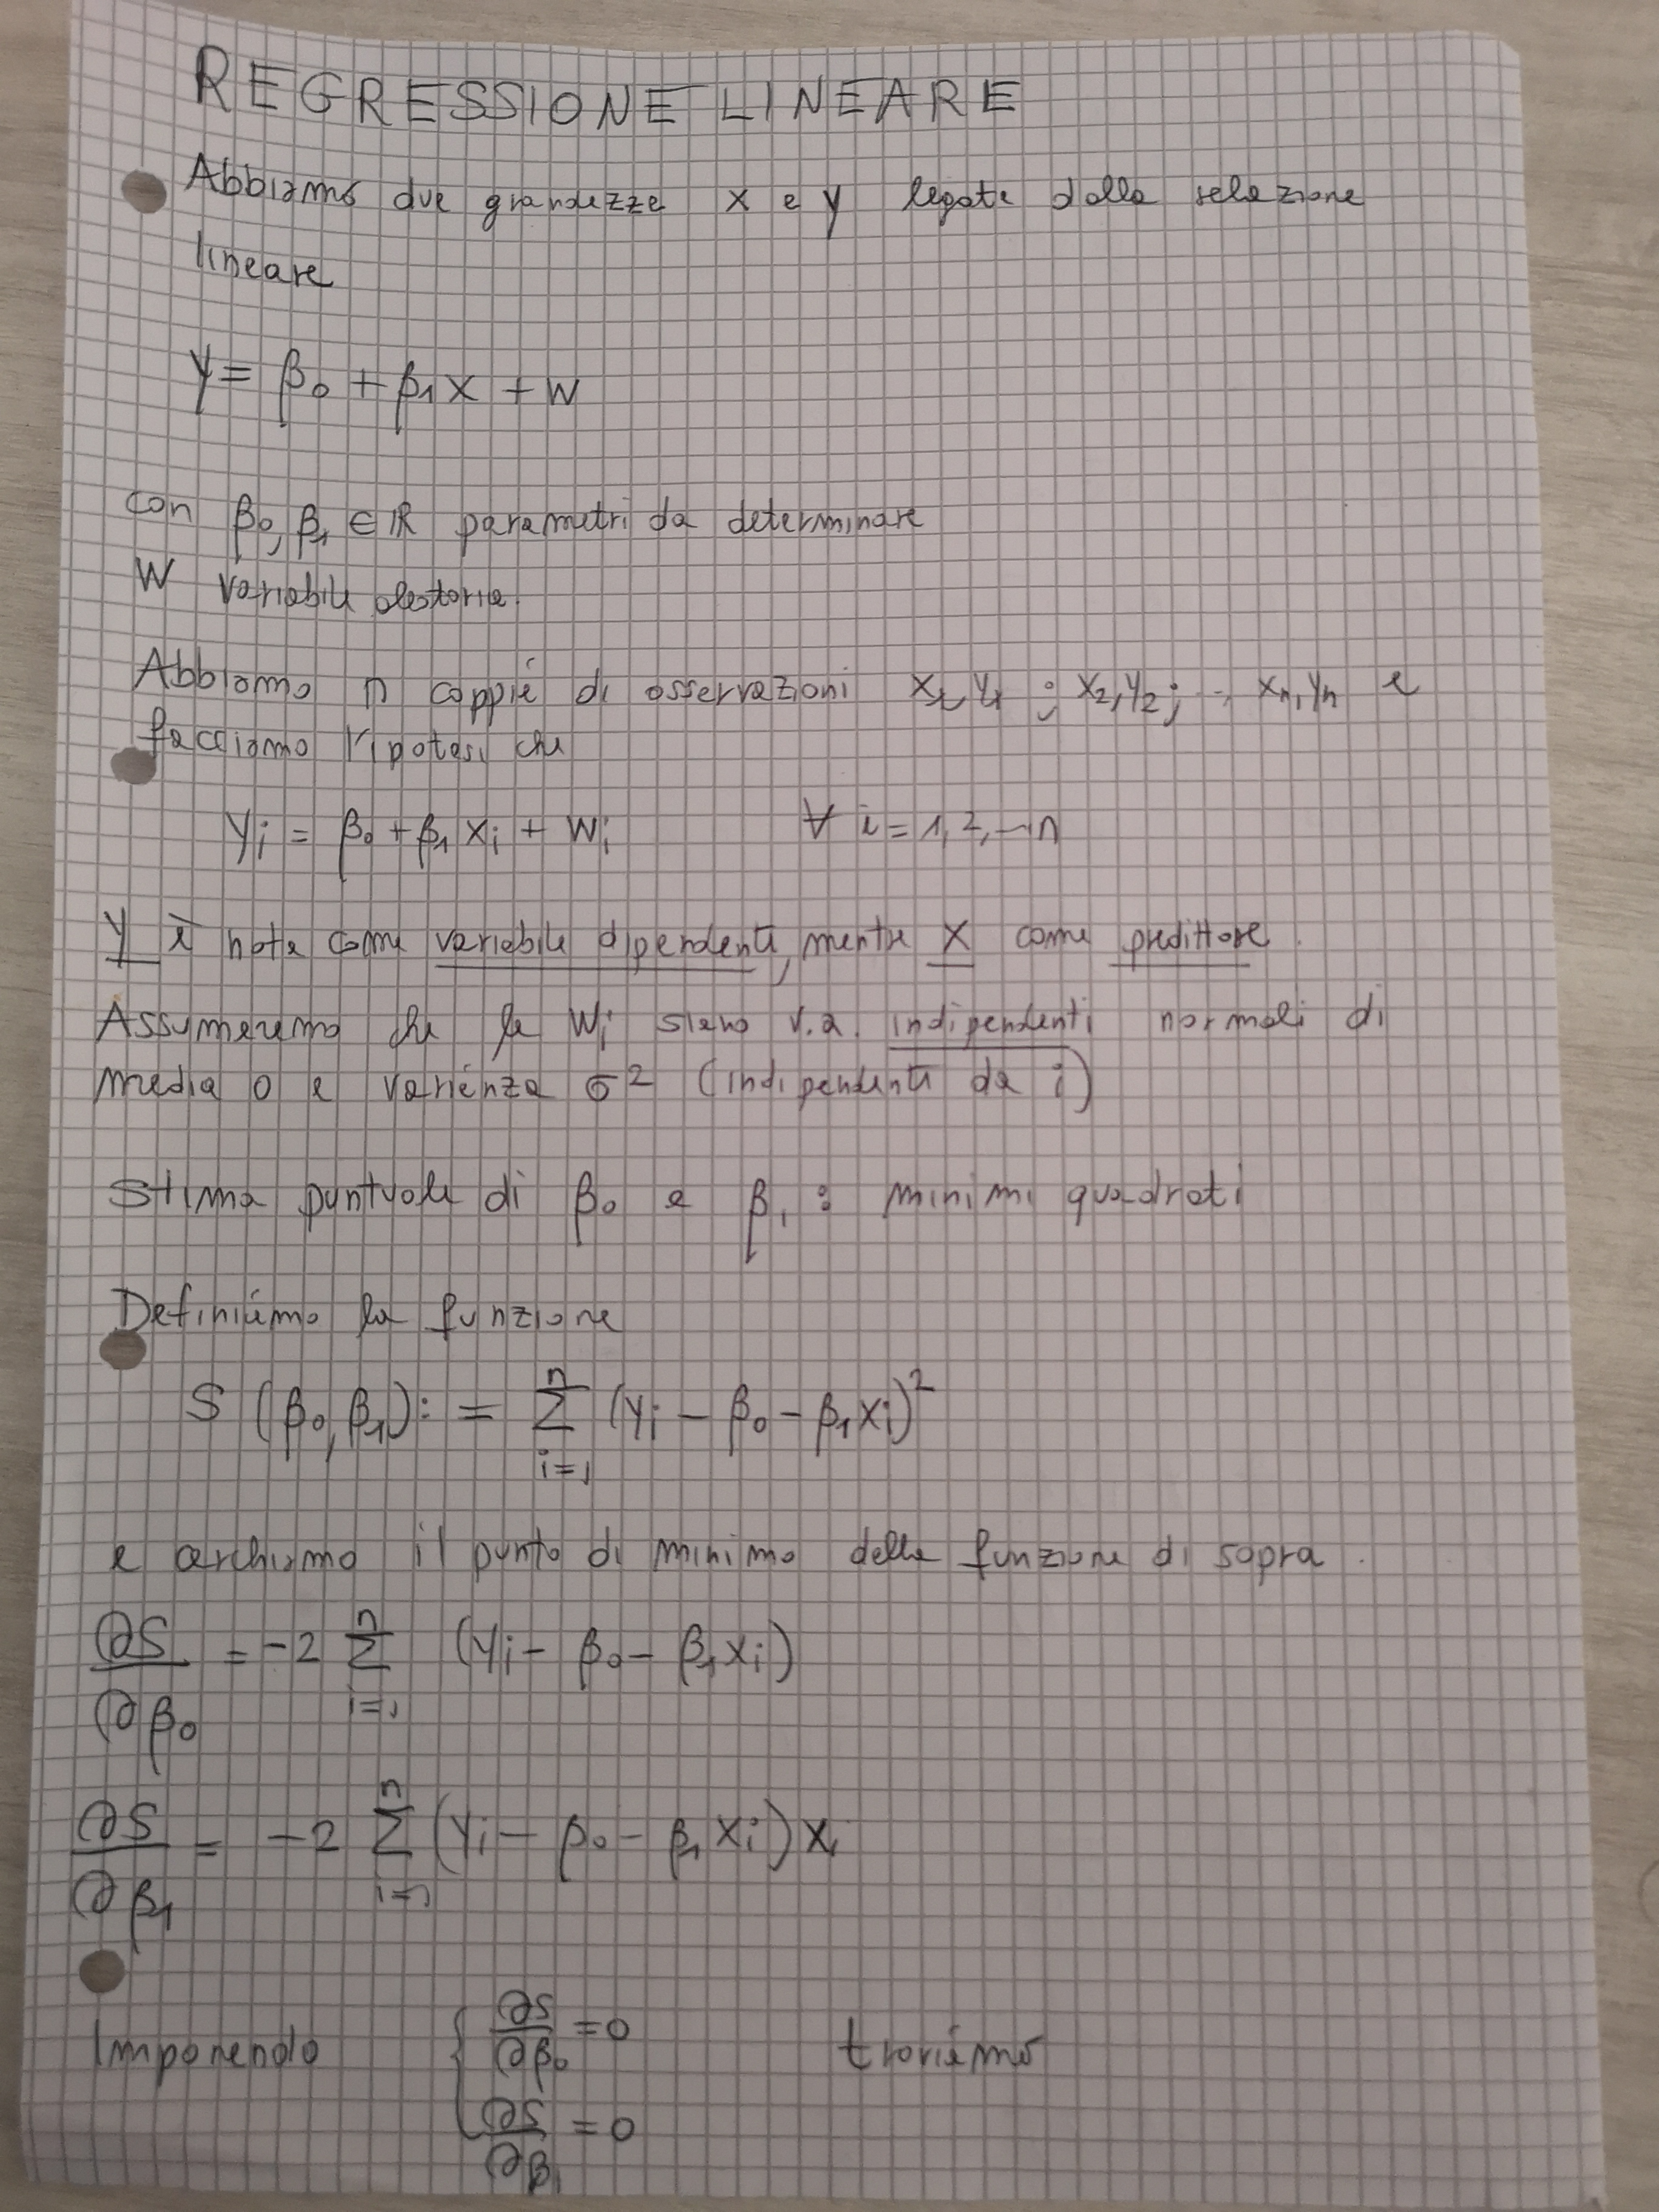 REGRESSIONE LINEARE
Abbiamo due grandezze x e y legate dalla relazione
lineare
y = β₀ + β₁x + W
con β₀, β₁ ∈ ℝ parametri da determinare
W variabile aleatoria.
Abbiamo n coppie di osservazioni x₁,y₁ ; x₂,y₂; .. xₙ,yₙ e
facciamo l'ipotesi che
yᵢ = β₀ + β₁xᵢ + Wᵢ ∀ i = 1, 2, -- n
y è nota come variabile dipendente, mentre x come predittore.
Assumeremo che le Wᵢ siano v.a. indipendenti normali di
media 0 e varianza σ² (indipendenti da i)
Stima puntuale di β₀ e β₁ : minimi quadrati
Definiamo la funzione
S (β₀, β₁) := ∑ᵢ₌₁ⁿ (yᵢ - β₀ - β₁xᵢ)²
e cerchiamo il punto di minimo della funzione di sopra.
∂S/∂β₀ = -2 ∑ᵢ₌₁ⁿ (yᵢ - β₀ - β₁xᵢ)
∂S/∂β₁ = -2 ∑ᵢ₌₁ⁿ (yᵢ - β₀ - β₁xᵢ) xᵢ
Imponendo { ∂S/∂β₀ = 0 troviamo
∂S/∂β₁ = 0